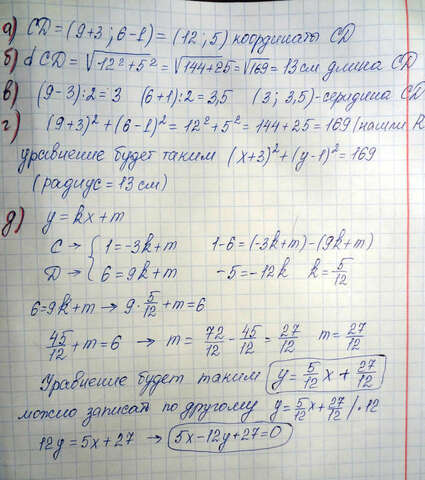 а) CD = (9+3 ; 6-1) = (12 ; 5) координаты CD
б) d CD = √12²+5² = √144+25 = √169 = 13 см длина CD
в) (9-3):2 = 3 (6+1):2 = 3,5 (3 ; 3,5) - середина CD
г) (9+3)² + (6-1)² = 12² + 5² = 144+25 = 169 (нашли R
уравнение будет таким (x+3)² + (y-1)² = 169
(радиус = 13 см)
д) y = kx + m
C → { 1 = -3k + m 1-6 = (-3k+m) - (9k+m)
D → { 6 = 9k + m -5 = -12k k = 5/12
6 = 9k + m → 9 · 5/12 + m = 6
45/12 + m = 6 → m = 72/12 - 45/12 = 27/12 m = 27/12
Уравнение будет таким y = 5/12 x + 27/12
можно записать по другому y = 5/12 x + 27/12 / · 12
12y = 5x + 27 → 5x - 12y + 27 = 0